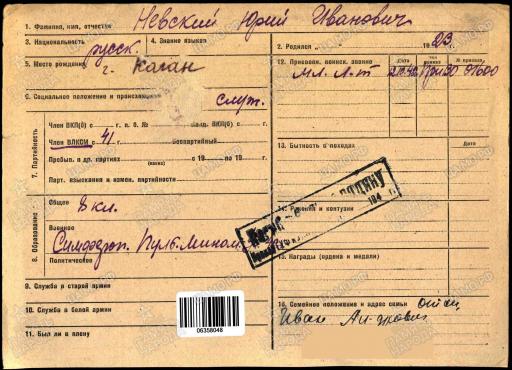 1. Фамилия, имя, отчество Невский Юрий Иванович
3. Национальность русск.
4. Знание языков
2. Родился „ “ 1923
5. Место рождения г. Каган
12. Присвоен. воинск. звание Дата № приказа
Мл. Л-т 00600
6. Социальное положение и происхождение служ.
7. Партийность
Член ВКП(б) с г. п. б. № Канд. ВКП(б) с г.
Член ВЛКСМ с 41 г. Беспартийный
Пребыв. в др. партиях с 19 по 19 г.
(каких)
Парт. взыскания и измен. партийности
13. Бытность в походах Дата
8. Образование
Общее 8 кл.
Военное
Симфероп. Пул. Мином.
Политическое
14. Ранения и контузии
194 г.
15. Награды (ордена и медали)
9. Служба в старой армии
10. Служба в белой армии
11. Был ли в плену
06358048
16. Семейное положение и адрес семьи отец
Иван